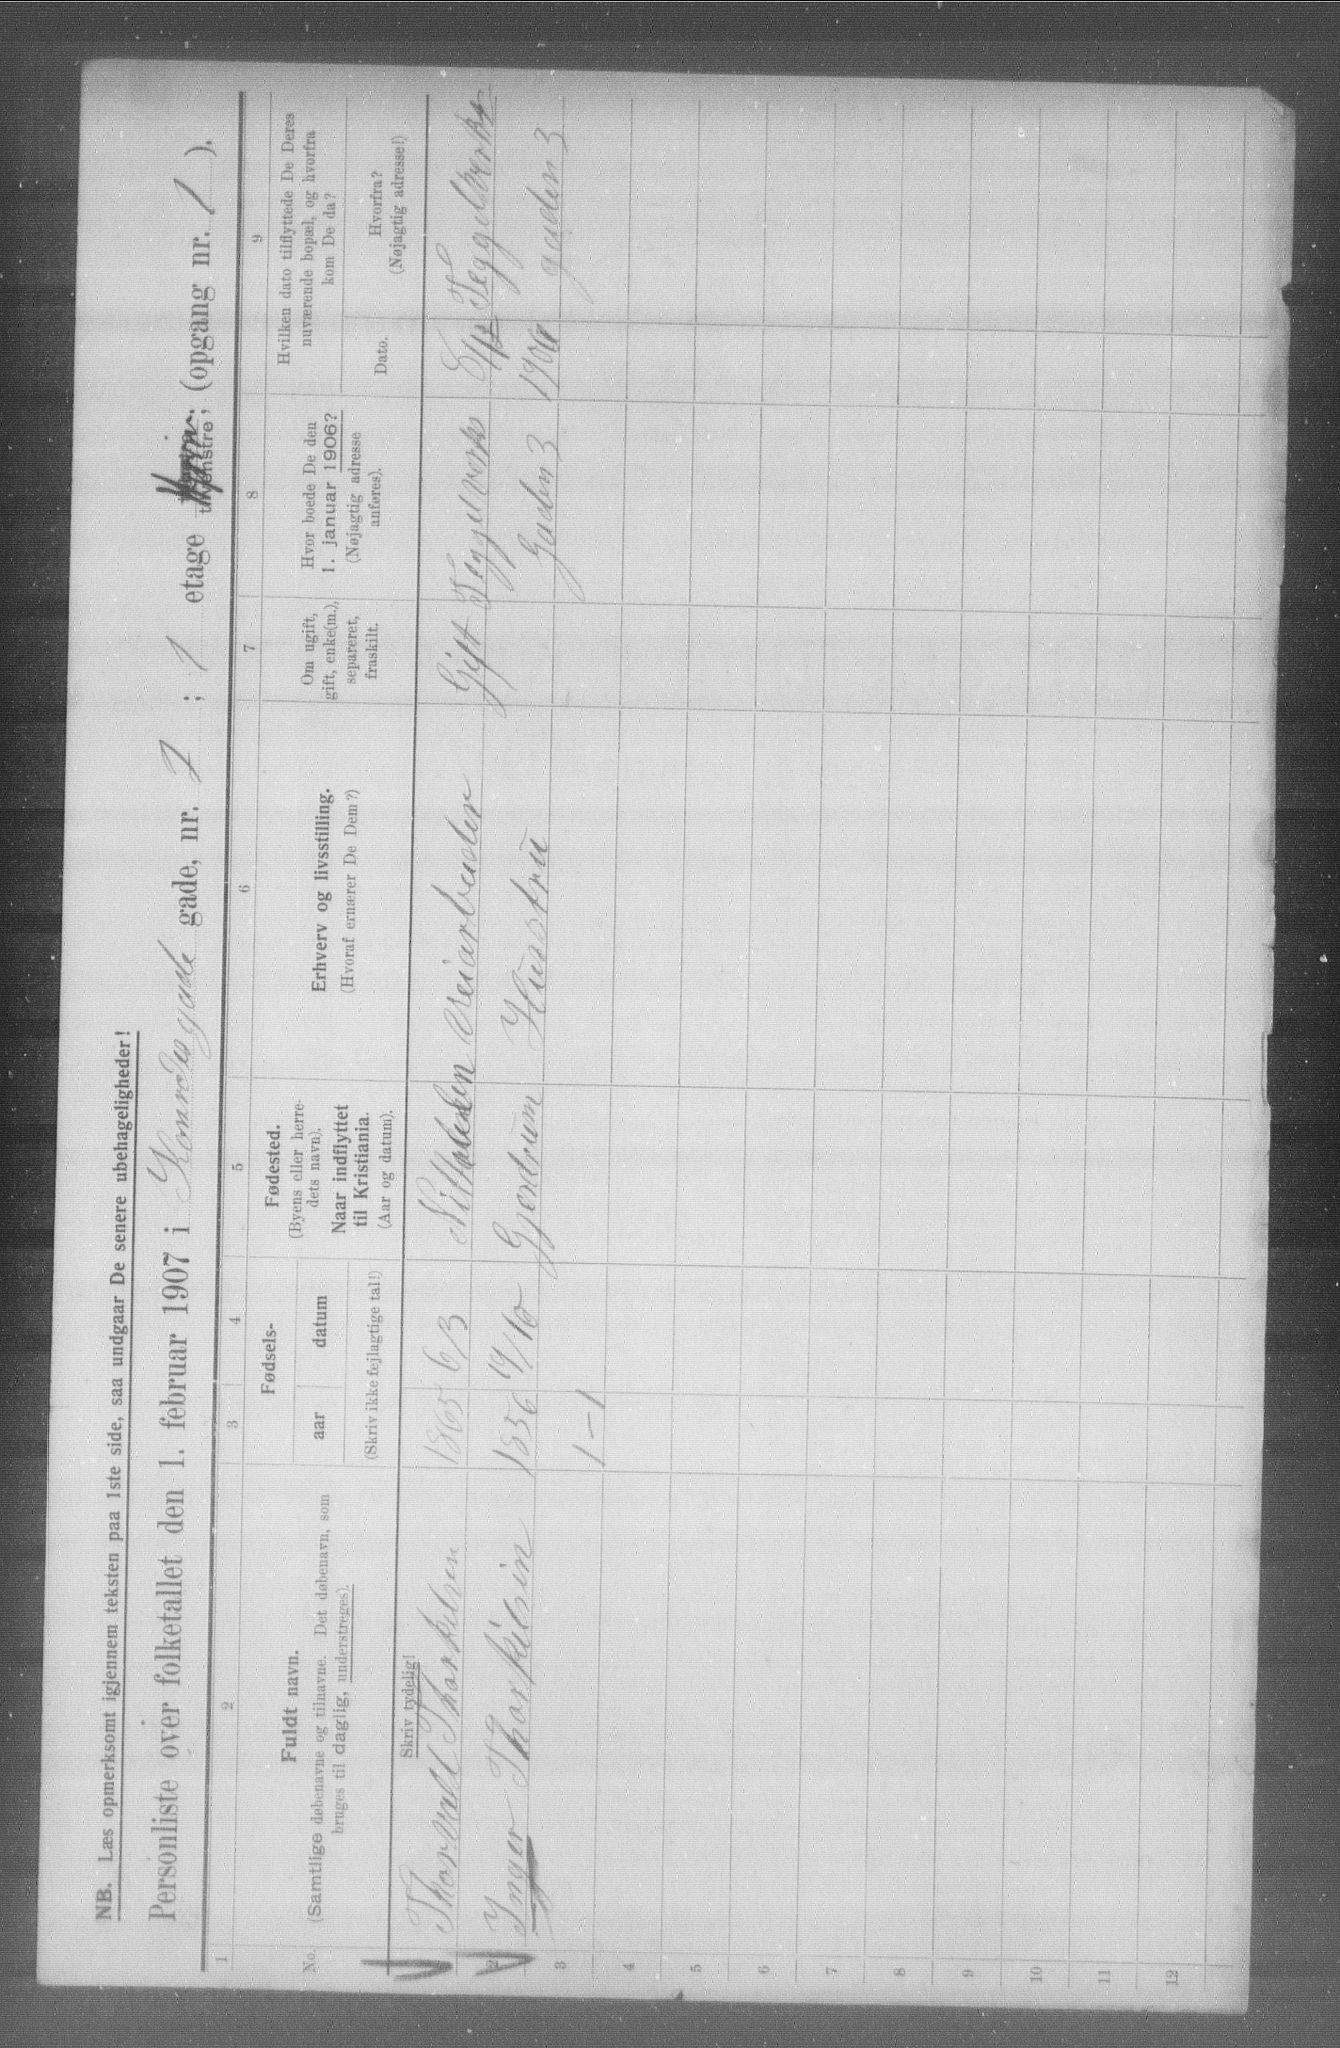 NB. Læs opmerksomt igjennem teksten paa 1ste side, saa undgaar De senere ubehageligheder!
Personliste over folketallet den 1. februar 1907 i gade, nr. 7 ; 1 etage tilvenstre; (opgang nr. 1 ).
1 2 3 4 5 6 7 8 9
No.
Fuldt navn.
(Samtlige døbenavne og tilnavne. Det døbenavn, som
bruges til daglig, understreges).
Fødsels-
aar datum
(Skriv ikke fejlagtige tal!)
Fødested.
(Byens eller herre-
dets navn).
Naar indflyttet
til Kristiania.
(Aar og datum).
Erhverv og livsstilling.
(Hvoraf ernærer De Dem?)
Om ugift,
gift, enke(m.),
separeret,
fraskilt.
Hvor boede De den
1. januar 1906?
(Nøjagtig adresse
anføres).
Hvilken dato tilflyttede De Deres
nuværende bopæl, og hvorfra
kom De da?
Dato.
Hvorfra?
(Nøjagtig adresse!)
Skriv tydelig!
Thorvall Thorkelsen 1865 6/3 Nittedalen Veiarbeider Gift Teggelverks Teggelverks
2 Inger Thorkelsen 1856 19/10 Gjerdrum Husstru Gaden 3 1906 gaden 3
3 1-1
4
5
6
7
8
9
10
11
12